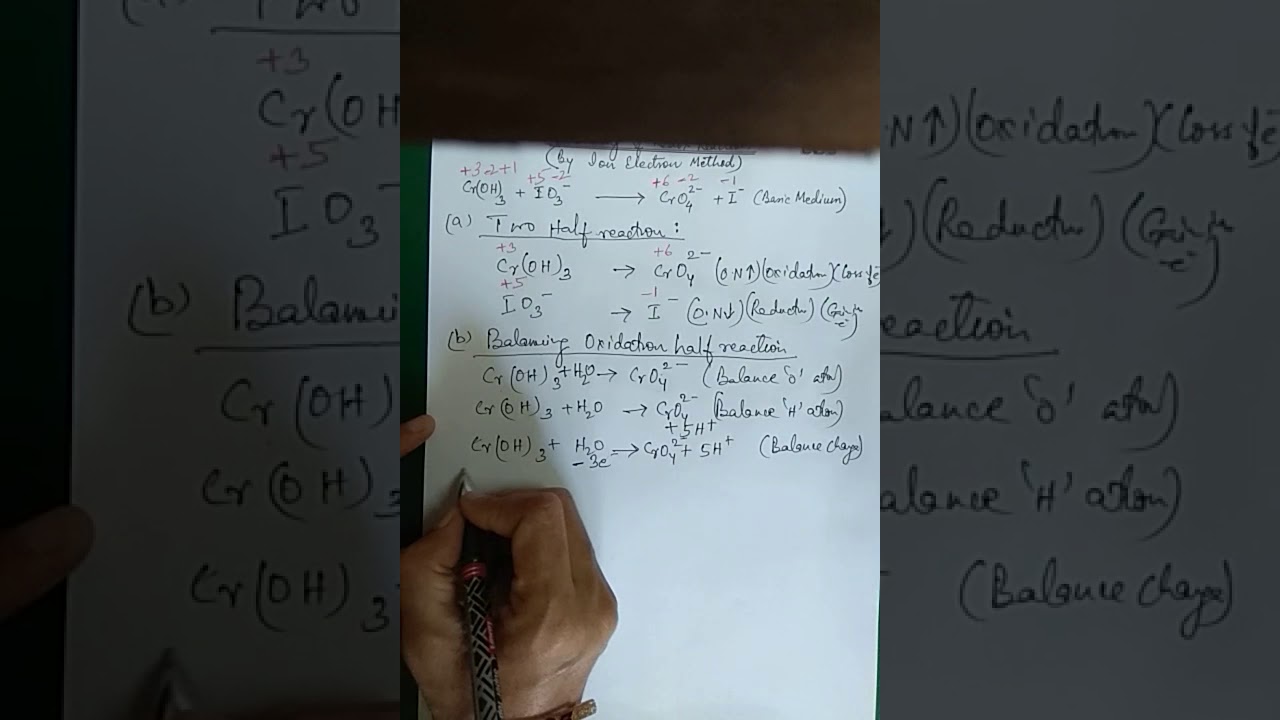 (By Ion Electron Method)
+3 -2 +1 +5 -2 +6 -2 -1
Cr(OH)₃ + IO₃⁻ ⟶ CrO₄²⁻ + I⁻ (Basic Medium)
(a) Two Half reaction:
+3 +6
Cr(OH)₃ → CrO₄²⁻ (O.N↑)(Oxidation)(Loss of e⁻
+5 -1
IO₃⁻ → I⁻ (O.N↓)(Reductn)(Gain in e⁻)
(b) Balancing Oxidation half reaction
Cr(OH)₃ + H₂O → CrO₄²⁻ (Balance 'O' atm)
Cr(OH)₃ + H₂O → CrO₄²⁻ (Balance 'H' atom)
+ 5H⁺
Cr(OH)₃ + H₂O → CrO₄²⁻ + 5H⁺ (Balance Charge)
- 3e